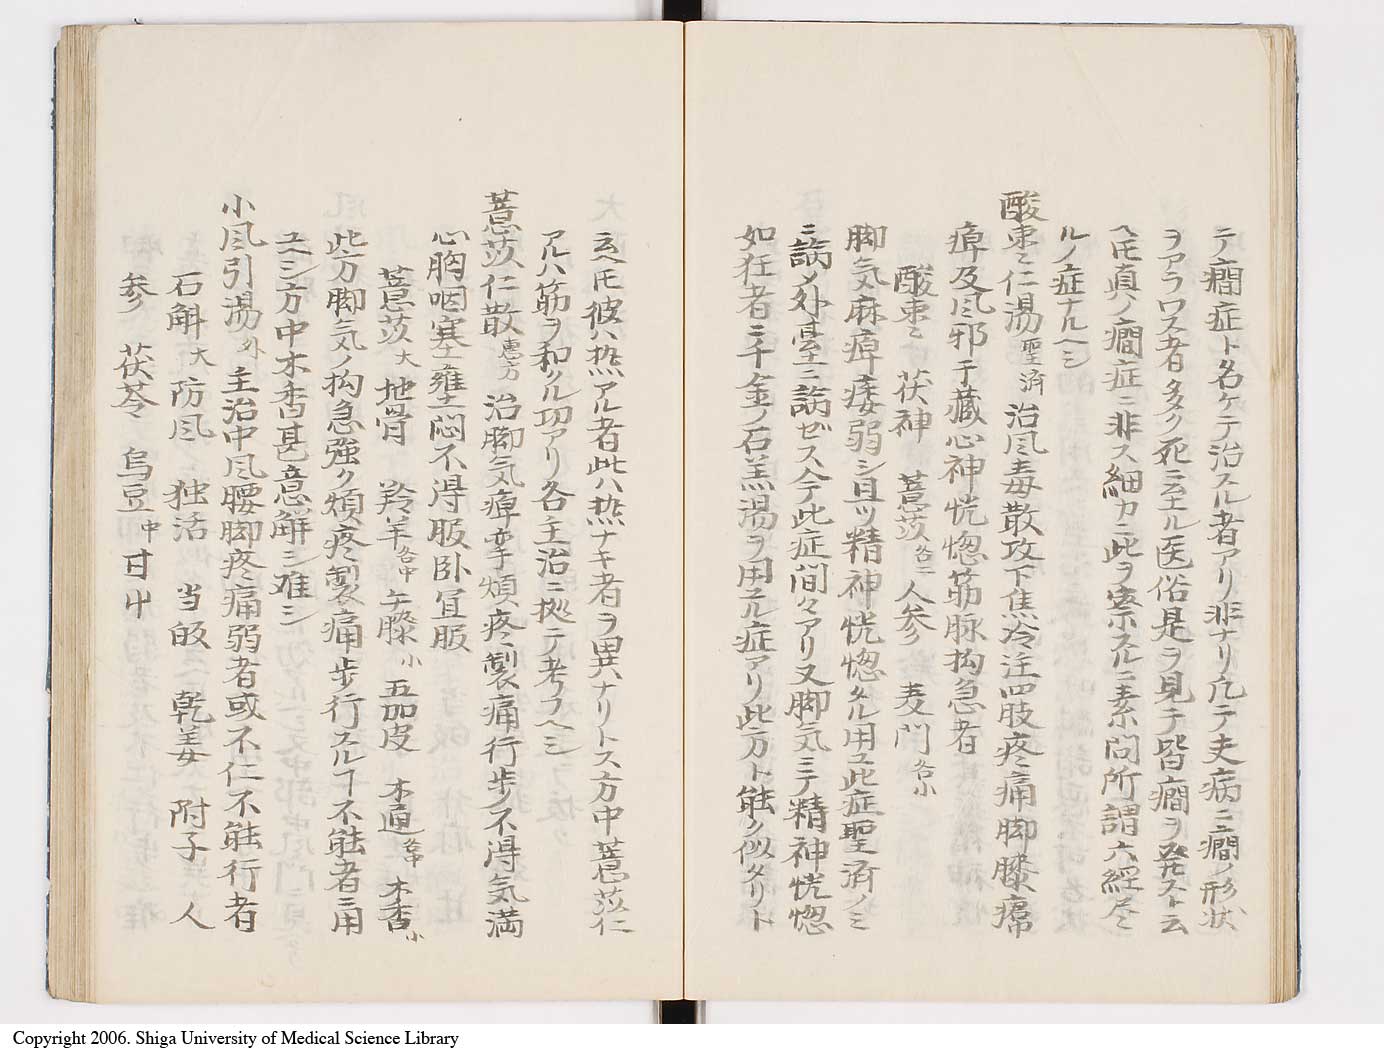 テ癇症ト名ケテ治スル者アリ非ナリ凡テ夫病ニ癇ノ形状
ヲアラワス者多ク死ニ至ル医俗是ヲ見テ皆癇ヲ発スト云
ヘ𪜈真ノ癇症ニ非ス細カニ此ヲ察スルニ素問所謂六経尽
ルノ症ナルヘシ
酸棗仁湯 聖済 治風毒散攻下焦冷注四肢疼痛脚膝
痺及風邪于蔵心神恍惚筋脉拘急者
酸棗 茯神 薏苡各二 人参 麦門各小
脚気麻痺痿弱シ且ツ精神恍惚タル用ユ此症聖済ノミ
ニ論メ外臺ニ論ゼス今テ此症間々アリ又脚気ニテ精神恍惚
如狂者ニ千金ノ石羔湯ヲ用ユル症アリ此方ト能ク似タリト
云ヘ𪜈彼ハ熱アル者此ハ熱ナキ者ヲ異ナリトス方中薏苡仁
アルハ筋ヲ和クル功アリ各主治ニ拠テ考フヘシ
薏苡仁散 恵方 治脚気痺挛煩疼製痛行歩不得気満
心胸咽塞壅悶不得眠卧宜服
薏苡大 地骨 羚羊各中 午膝小 五加皮 木通各中 木香小
此方脚気ノ拘急強ク煩疼製痛歩行スルヿ不能者ニ用
ユシ方中木香甚意解シ难シ
小風引湯外 主治中風腰脚疼痛弱者或不仁不能行者
石斛大 防風 独活 当皈 乾姜 附子 人
参 茯苓 烏豆中 甘小
Copyright 2006. Shiga University of Medical Science Library